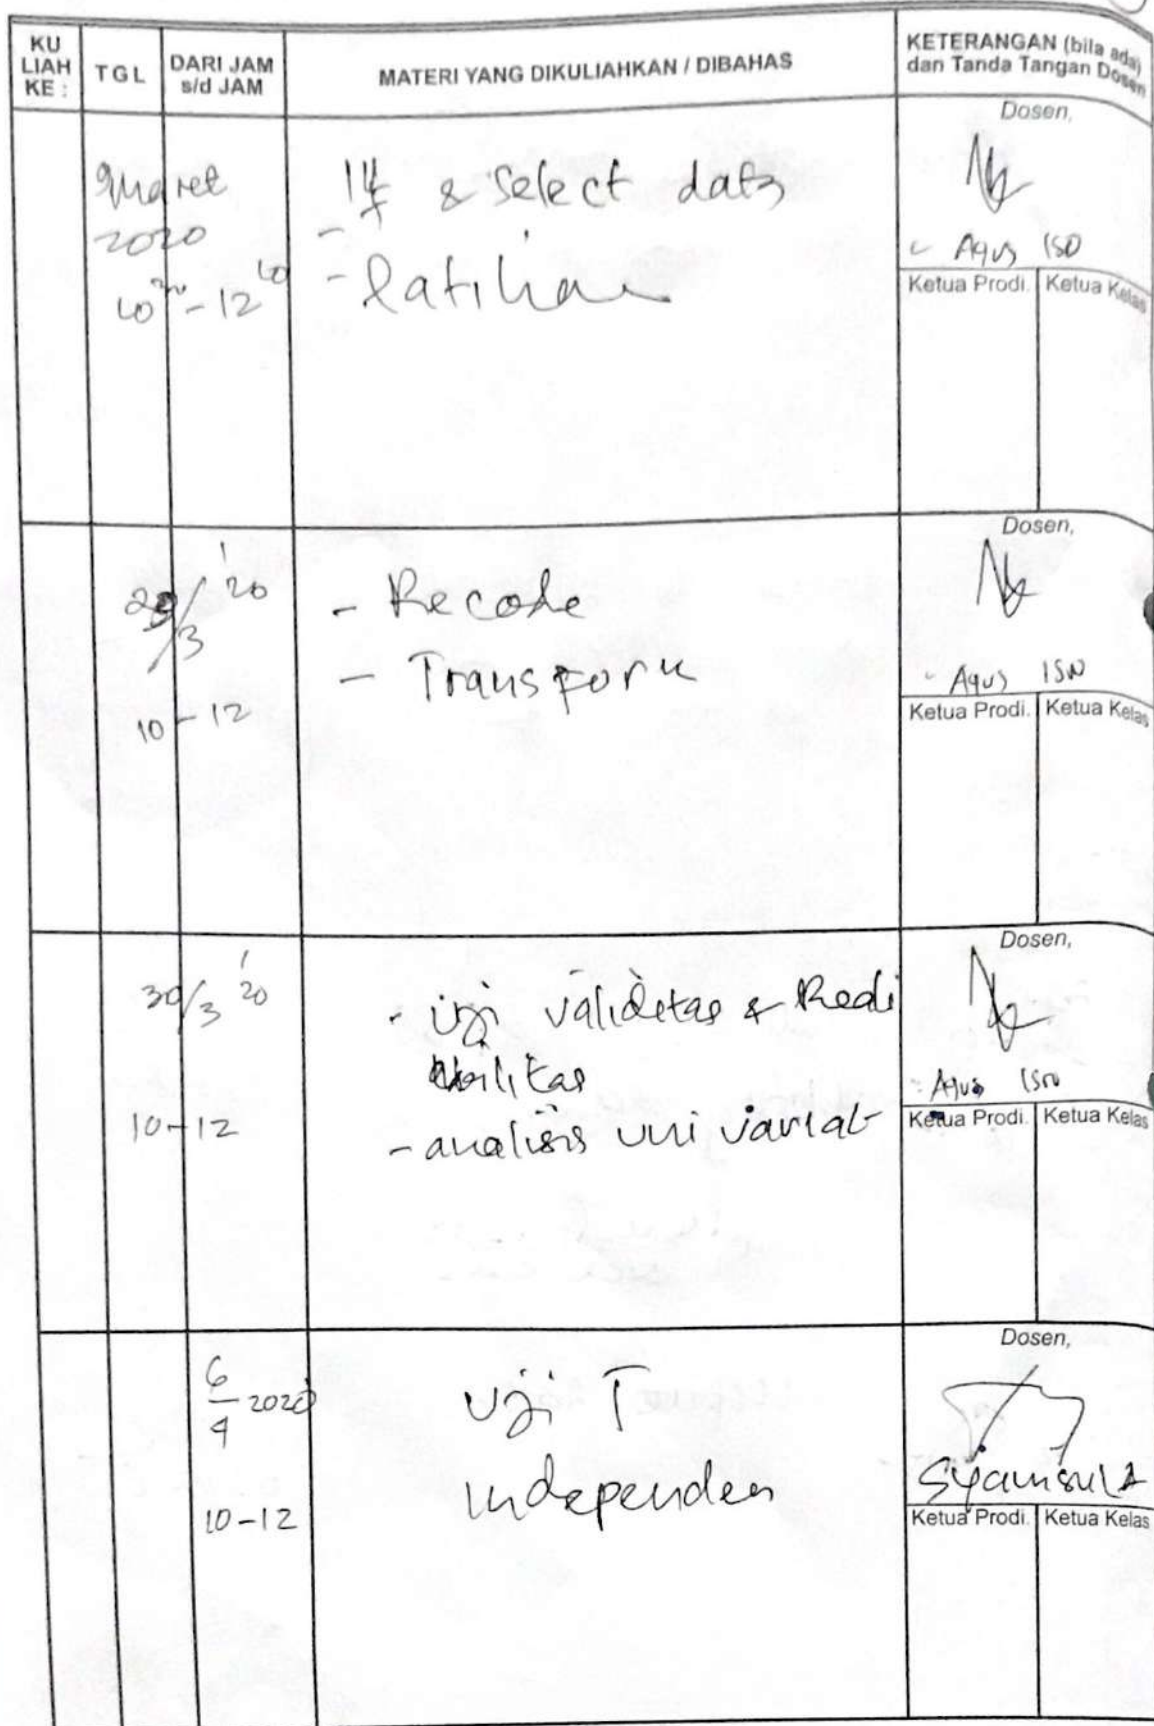 KU LIAH KE :
TGL
DARI JAM s/d JAM
MATERI YANG DIKULIAHKAN / DIBAHAS
KETERANGAN (bila ada) dan Tanda Tangan Dosen
9 Maret
2020
10 - 12
If & select data
- latihan
Dosen,
- Agus ISN
Ketua Prodi. Ketua Kelas
/3 '20
10 - 12
- Recode
- Transform
Dosen,
- Agus ISN
Ketua Prodi. Ketua Kelas
30/3 '20
10 - 12
- Uji validitas & Reali
bilitas
- analisis uni variat
Dosen,
- Agus ISN
Ketua Prodi. Ketua Kelas
6/4 2020
10 - 12
Uji T
independen
Dosen,
Syamsul A
Ketua Prodi. Ketua Kelas